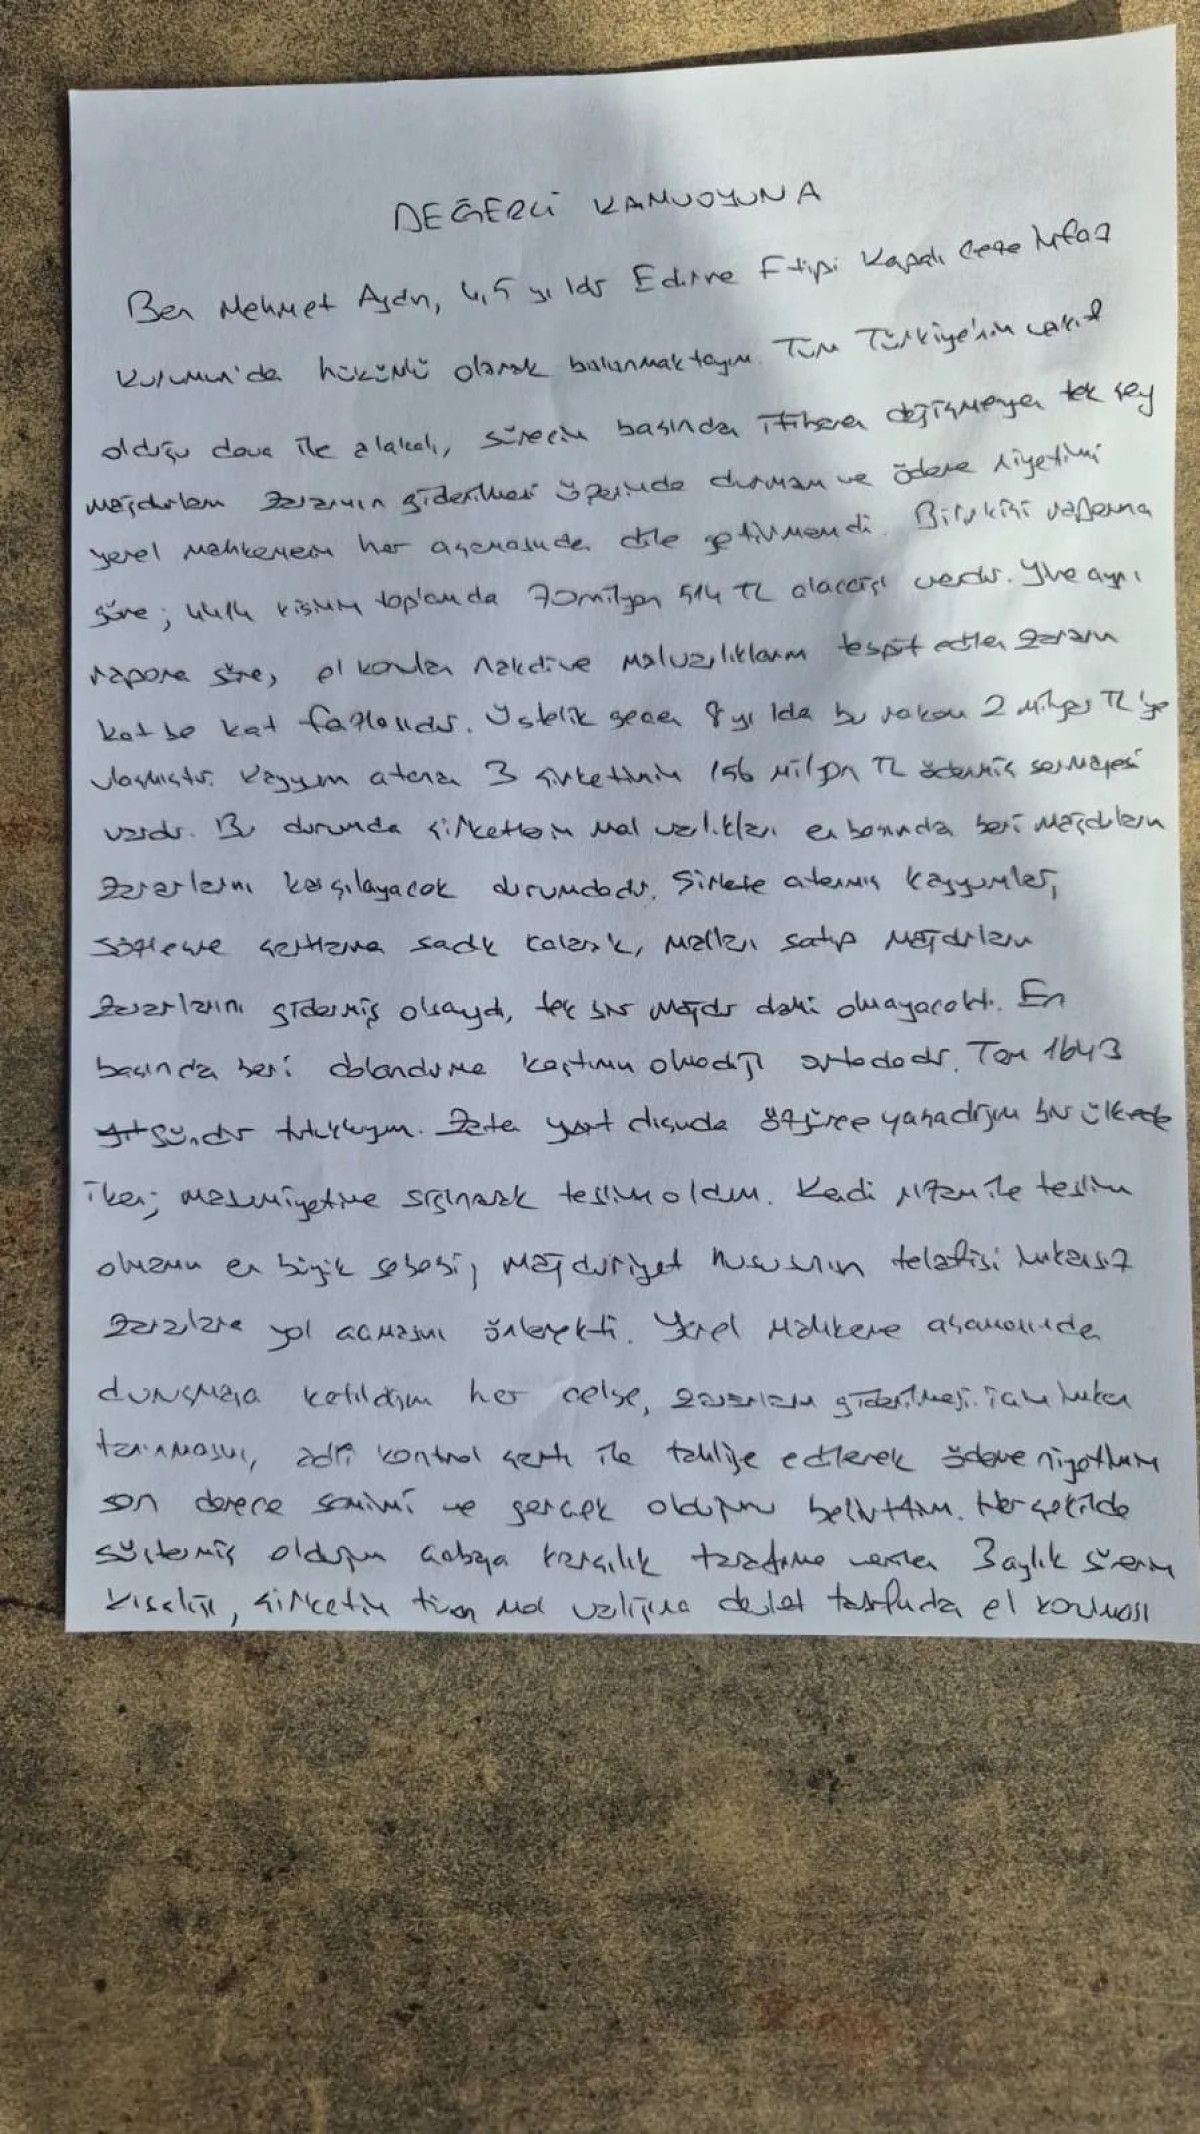 DEĞERLİ KAMUOYUNA
Ben Mehmet Aydın, 4,5 yıldır Edirne F tipi Kapalı Ceza İnfaz
Kurumun'da hükümlü olarak bulunmaktayım. Tüm Türkiye'nin vakıf
olduğu dava ile alakalı, sürecin başından itibaren değişmeyen tek şey
mağdurların zararının giderilmesi üzerinde durmam ve ödeme niyetimi
yerel mahkemenin her aşamasında dile getirmemdi. Bilirkişi raporuna
göre; 4414 kişinin toplamda 70 milyon 514 TL alacağı vardır. Yine aynı
rapora göre, el konulan nakdi ve malvarlıklarım tespit edilen zararın
kat be kat fazlasıdır. Üstelik geçen 8 yılda bu rakam 2 Milyar TL'ye
ulaşmıştır. Kayyum atanan 3 şirketimin 156 Milyon TL ödenmiş sermayesi
vardır. Bu durumda şirketlerin mal varlıkları en başında beri mağdurların
zararlarını karşılayacak durumdadır. Şirkete atanmış kayyumlar,
sözleşme şartlarına sadık kalarak, malları satıp mağdurların
zararlarını gidermiş olsaydı, tek bir mağdur dahi olmayacaktı. En
başında beri dolandırma kastımın olmadığı ortadadır. Tam 1643
gündür tutukluyum. Zaten yurt dışında özgürce yaşadığım bir ülkede
iken; masumiyetime sığınarak teslim oldum. Kendi rızam ile teslim
olmamın en büyük sebebi, mağduriyet hususunun telafisi imkansız
zararlara yol açmasını önlemekti. Yerel Mahkeme aşamasında
duruşmaya katıldığım her celse, zararların giderilmesi için imkan
tanınmasını, adli kontrol şartı ile tahliye edilerek ödeme niyetimin
son derece samimi ve gerçek olduğunu belirttim. Her şekilde
göstermiş olduğum çabaya karşılık tarafıma verilen 3 aylık sürenin
kısalığı, şirketin tüm mal varlığına devlet tarafından el konulması